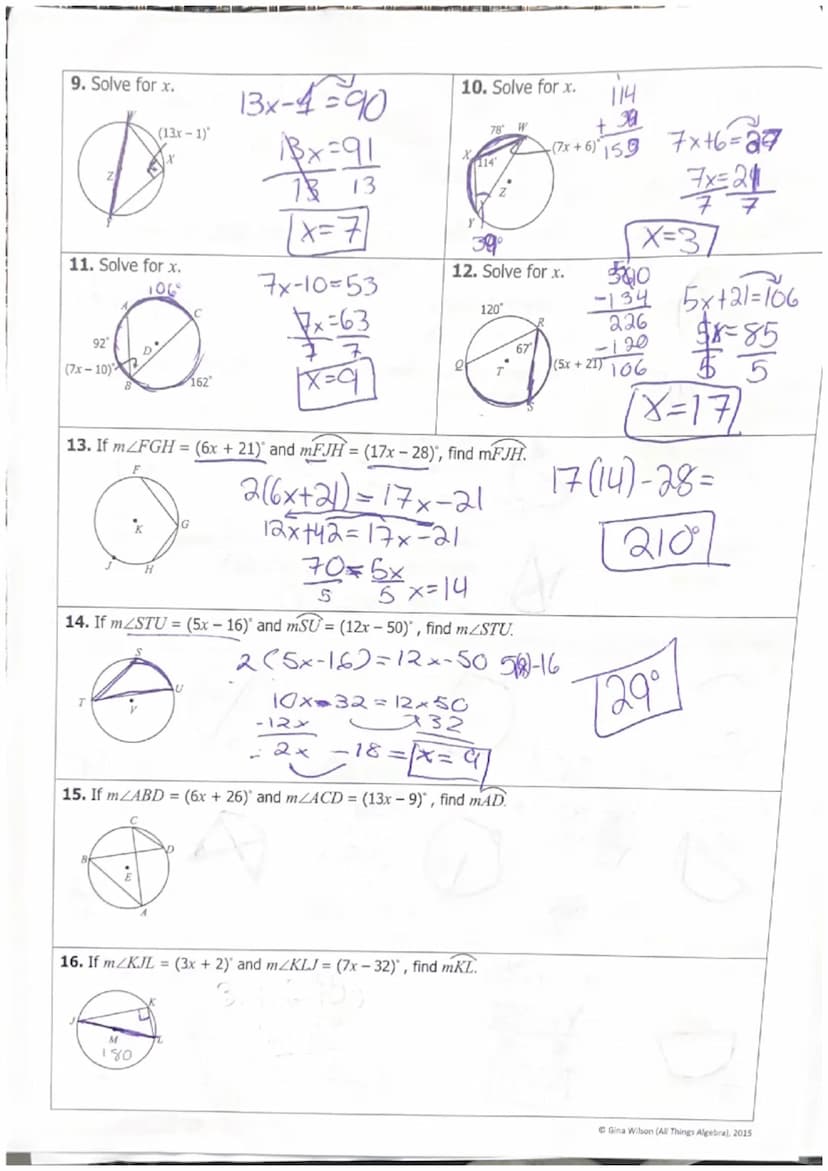 9. Solve for x.
13x-1=90
(13x – 1)°
X
Z
Y
13x=91
13 13
x=7
10. Solve for x.
114
+ 39
153
78° W
(7x + 6)°
X
114°
Z
Y
39°
7x+6=27
7x=21
7 7
x=3
11. Solve for x.
106°
A
C
92°
D
(7x – 10)°
B
162°
7x-10=53
7x=63
7 7
x=9
12. Solve for x.
120°
R
67°
Q
T
(5x + 21)°
S
360
-134
226
-120
106
5x+21=106
5x=85
5 5
x=17
13. If m∠FGH = (6x + 21)° and mFJH = (17x – 28)°, find mFJH.
F
K
G
J
H
2(6x+21)=17x-21
12x+42=17x-21
70=5x
5 5 x=14
17(14)-28=
210°
14. If m∠STU = (5x – 16)° and mSU = (12x – 50)°, find m∠STU.
S
T
U
V
2(5x-16)=12x-50
10x-32=12x50
-12x +32
-2x -18= x=9
5(9)-16
29°
15. If m∠ABD = (6x + 26)° and m∠ACD = (13x – 9)°, find mAD.
C
B
D
E
A
16. If m∠KJL = (3x + 2)° and m∠KLJ = (7x – 32)°, find mKL.
K
J
M
L
180
© Gina Wilson (All Things Algebra), 2015